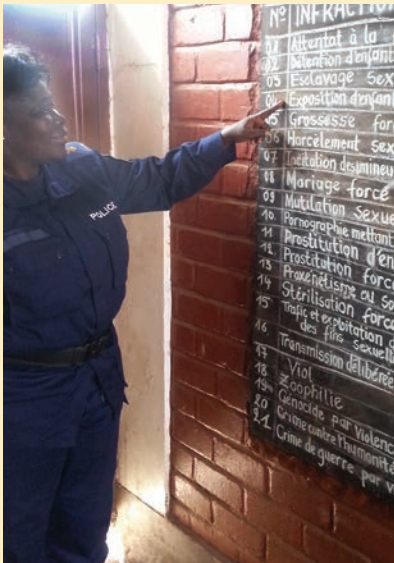 POLICE
N° INFRACTION
01 Attentat à la
02 Détention d'enfant
03 Esclavage Sex
04 Exposition d'enfant
05 Grossesse for
06 Harcèlement sex
07 Incitation des mineu
08 Mariage forcé
09 Mutilation Sexue
10. Pornographie mettant
11 Prostitution d'en
12 Prostitution forcé
13 Proxénétisme ou so
14 Stérilisation forcé
15 Trafic et exploitation d
des fins sexuelle
16 Transmission délibérée
17 Viol
18 Zoophilie
19 Génocide par violenc
20 Crime contre l'humanité
21 Crime de guerre par v